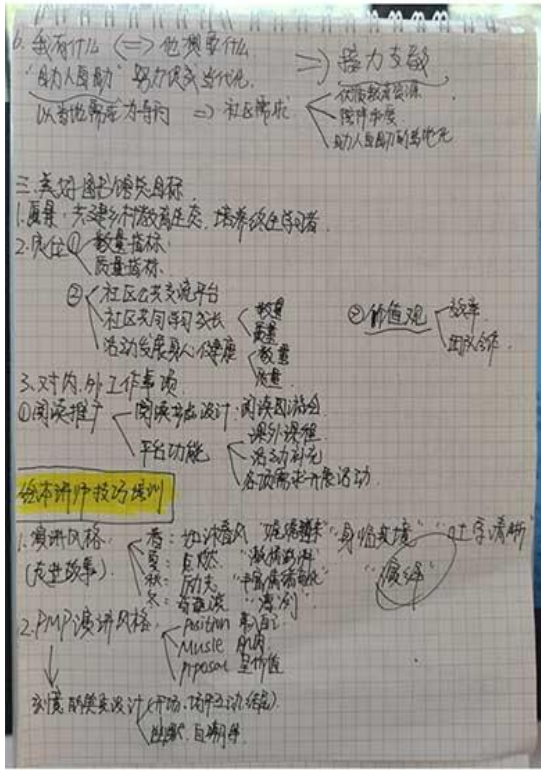 6. 我有什么 <=> 他想要什么
"助人自助" 努力促成当代化 => 接力支教
以当地需求为导向 => 社区需求
优质教育资源
陪伴
助人自助的当地化
三.美好图书馆类目标
1.愿景:共建乡村教育生态,培养终生学习者.
2.定位 ① 数量指标.
质量指标.
② 社区公共交流平台
社区共同学习成长 数量
质量
活动发展身心健康 数量
质量
③ 价值观 效率
团队合作.
3.对内.外工作事项
①阅读推广 阅读书应设计:阅读园游会
平台功能 课外课程
活动补充
各项需求开展活动.
绘本讲师技巧培训
1.演讲风格 春: 如沐春风 "娓娓道来" "身临其境" "吐字清晰"
(走进故事). 夏: 自然 "激情澎湃" "演绎"
秋: "丰富情绪变化"
冬: "凛冽"
2.PMP演讲风格 position 自己
Musle 肌肉
Proposal 价值
刻意的美要设计(开场、场中互动、结尾).
幽默、自嘲